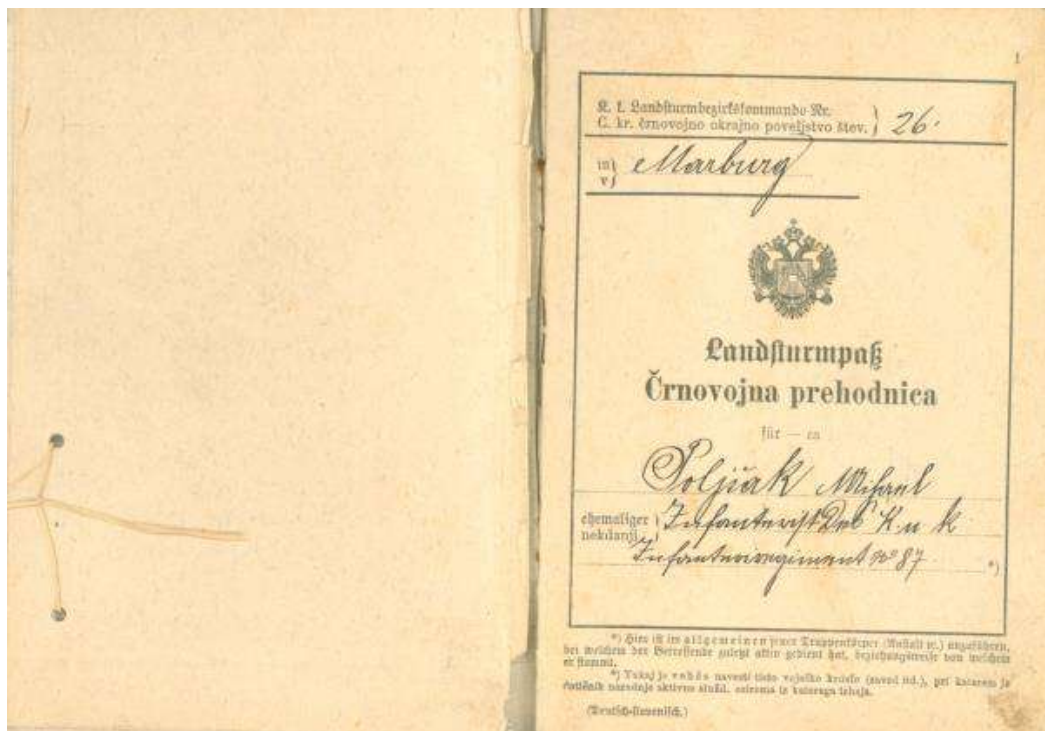 1
K. k. Landsturmbezirkskommando Nr.
C. kr. črnovojno okrajno poveljstvo štev. } 26.
in
v } Marburg
Landsturmpaß
Črnovojna prehodnica
für — za
Mihael
ehemaliger
nekdanji } Infanterist Des K. u. k.
Infanterieregiment No 87 *)
*) Hier ist im allgemeinen jener Truppenkörper (Anstalt etc.) anzuführen,
bei welchem der Betreffende zuletzt aktiv gedient hat, beziehungsweise von welchem
er stammt.
*) Tukaj je vobče navesti tisto vojaško krdelo (zavod itd.), pri katerem je
nazadnje aktivno služil, oziroma iz katerega izhaja.
(Deutsch-slovenisch.)